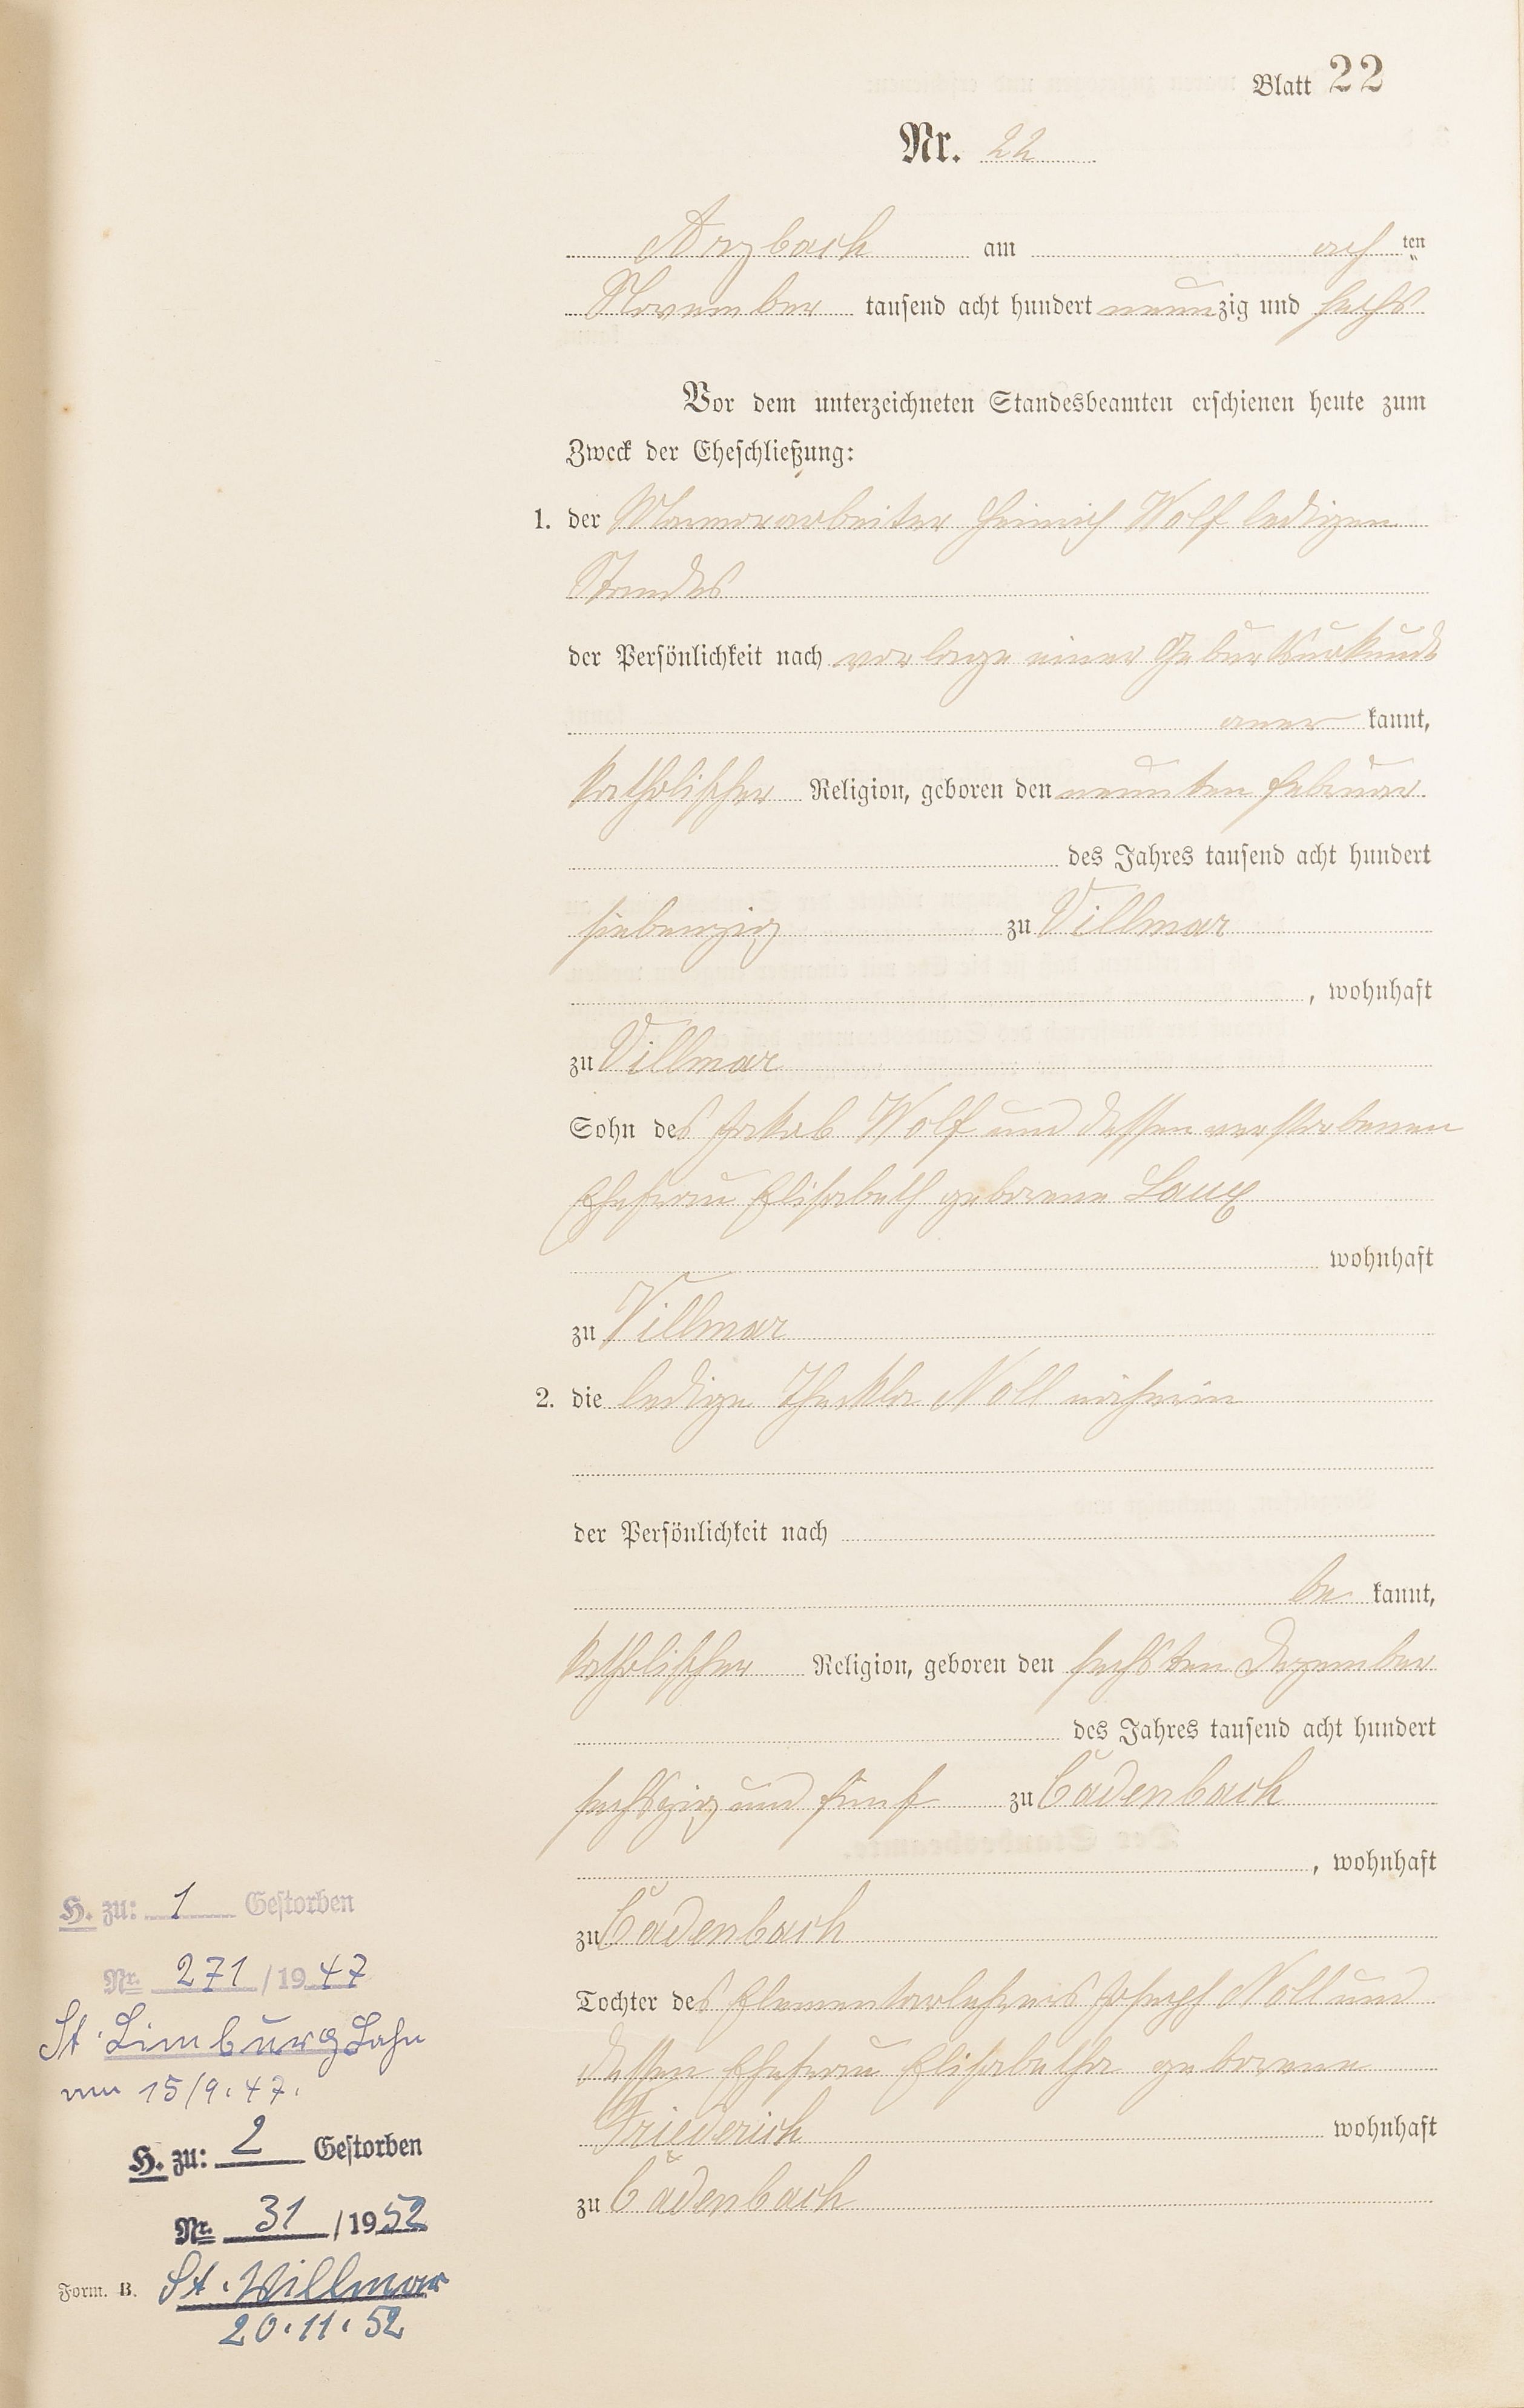 Blatt 22
Nr. 22
Arzbach am ach ten
November tausend acht hundert neunzig und sechs
Vor dem unterzeichneten Standesbeamten erschienen heute zum
Zweck der Eheschließung:
1. der Marmorarbeiter Heinrich Wolf ledigen
Standes
der Persönlichkeit nach vorlage einer Geburtsurkunde
aner kannt,
katholischer Religion, geboren den neunten Februar
des Jahres tausend acht hundert
siebenzig zu Villmar
, wohnhaft
zu Villmar
Sohn des Jakob Wolf und dessen verstorbenen
Ehefrau Elisabeth geborene Laux
wohnhaft
zu Villmar
2. die ledige Theckla Noll näherin
der Persönlichkeit nach
be kannt,
katholischer Religion, geboren den sechsten Dezember
des Jahres tausend acht hundert
sechszig und fünf zu Cadenbach
, wohnhaft
zu Cadenbach
Tochter des Elementarlehrers Joseph Noll und
dessen Ehefrau Elisabetha geborene
Friederich wohnhaft
zu Cadenbach
H. zu: 1 Gestorben
Nr. 271 / 1947
St. Limburg Lahn
am 15/9.47.
H. zu: 2 Gestorben
Nr. 31 / 1952
Form. B. St. Villmar
20.11.52